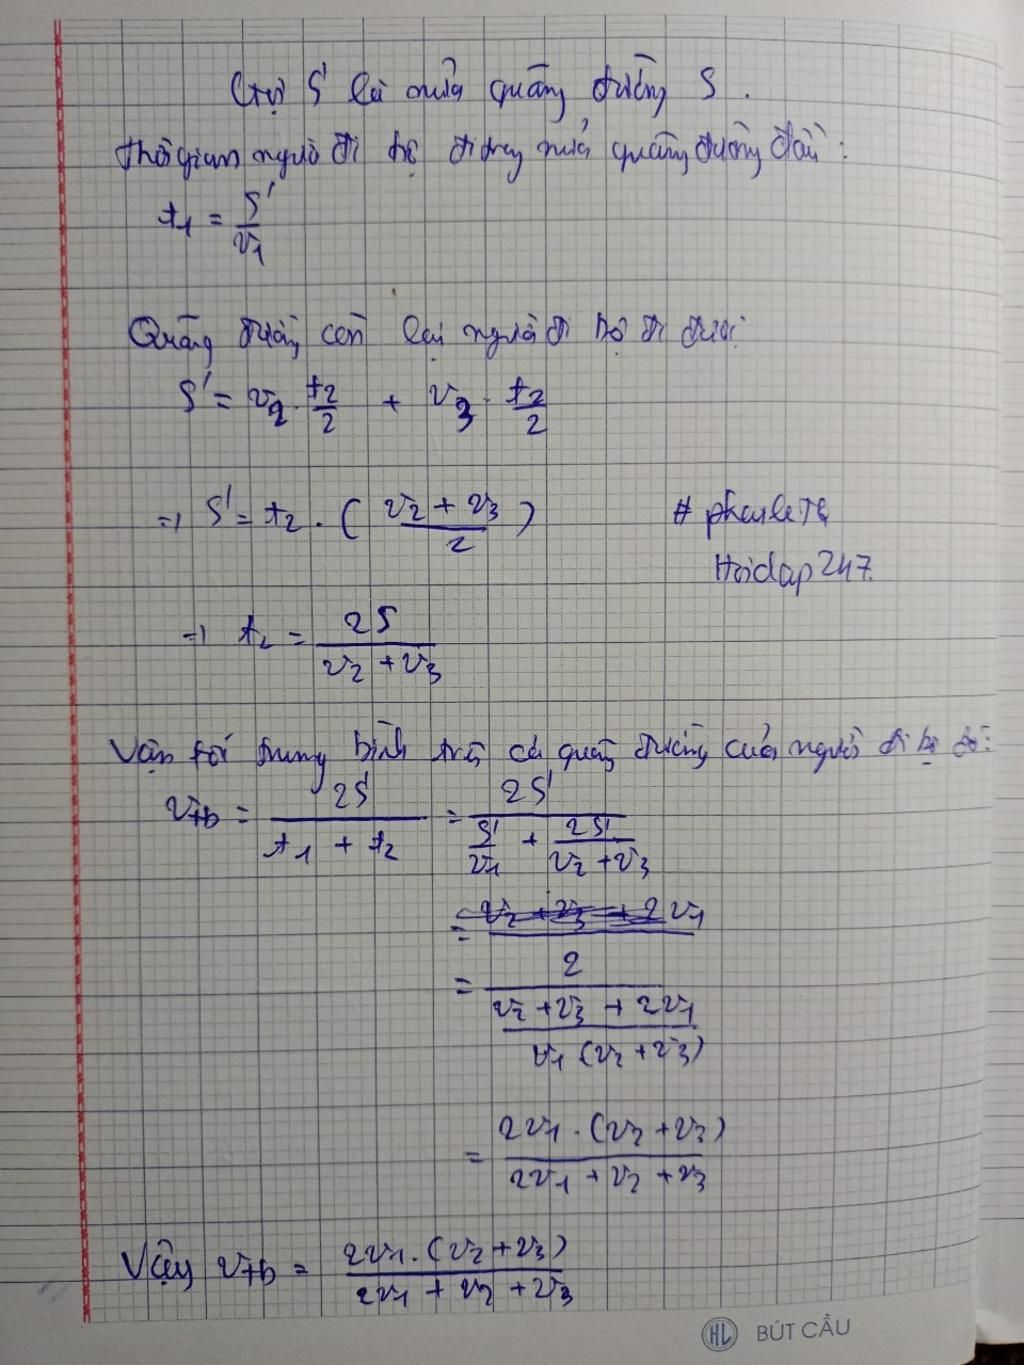 Gọi S' là nửa quãng đường S.
Thời gian người đi bộ đi trong nửa quãng đường đầu:
t1 = S'/v1
Quãng đường còn lại người đi bộ đi được:
S' = v2 . t2/2 + v3 . t2/2
=> S' = t2 . ( (v2 + v3)/2 )
# phanleTQ
Hoidap247.
=> t2 = 2S/(v2 + v3)
Vận tốc trung bình trên cả quãng đường của người đi bộ đó:
vtb = 2S'/(t1 + t2) = 2S'/(S'/v1 + 2S'/(v2 + v3))
= v2 + v3 + 2v1
= 2/((v2 + v3 + 2v1)/(v1 (v2 + v3)))
= 2v1 . (v2 + v3)/(2v1 + v2 + v3)
Vậy vtb = 2v1 . (v2 + v3)/(2v1 + v2 + v3)
HL BÚT CẦU